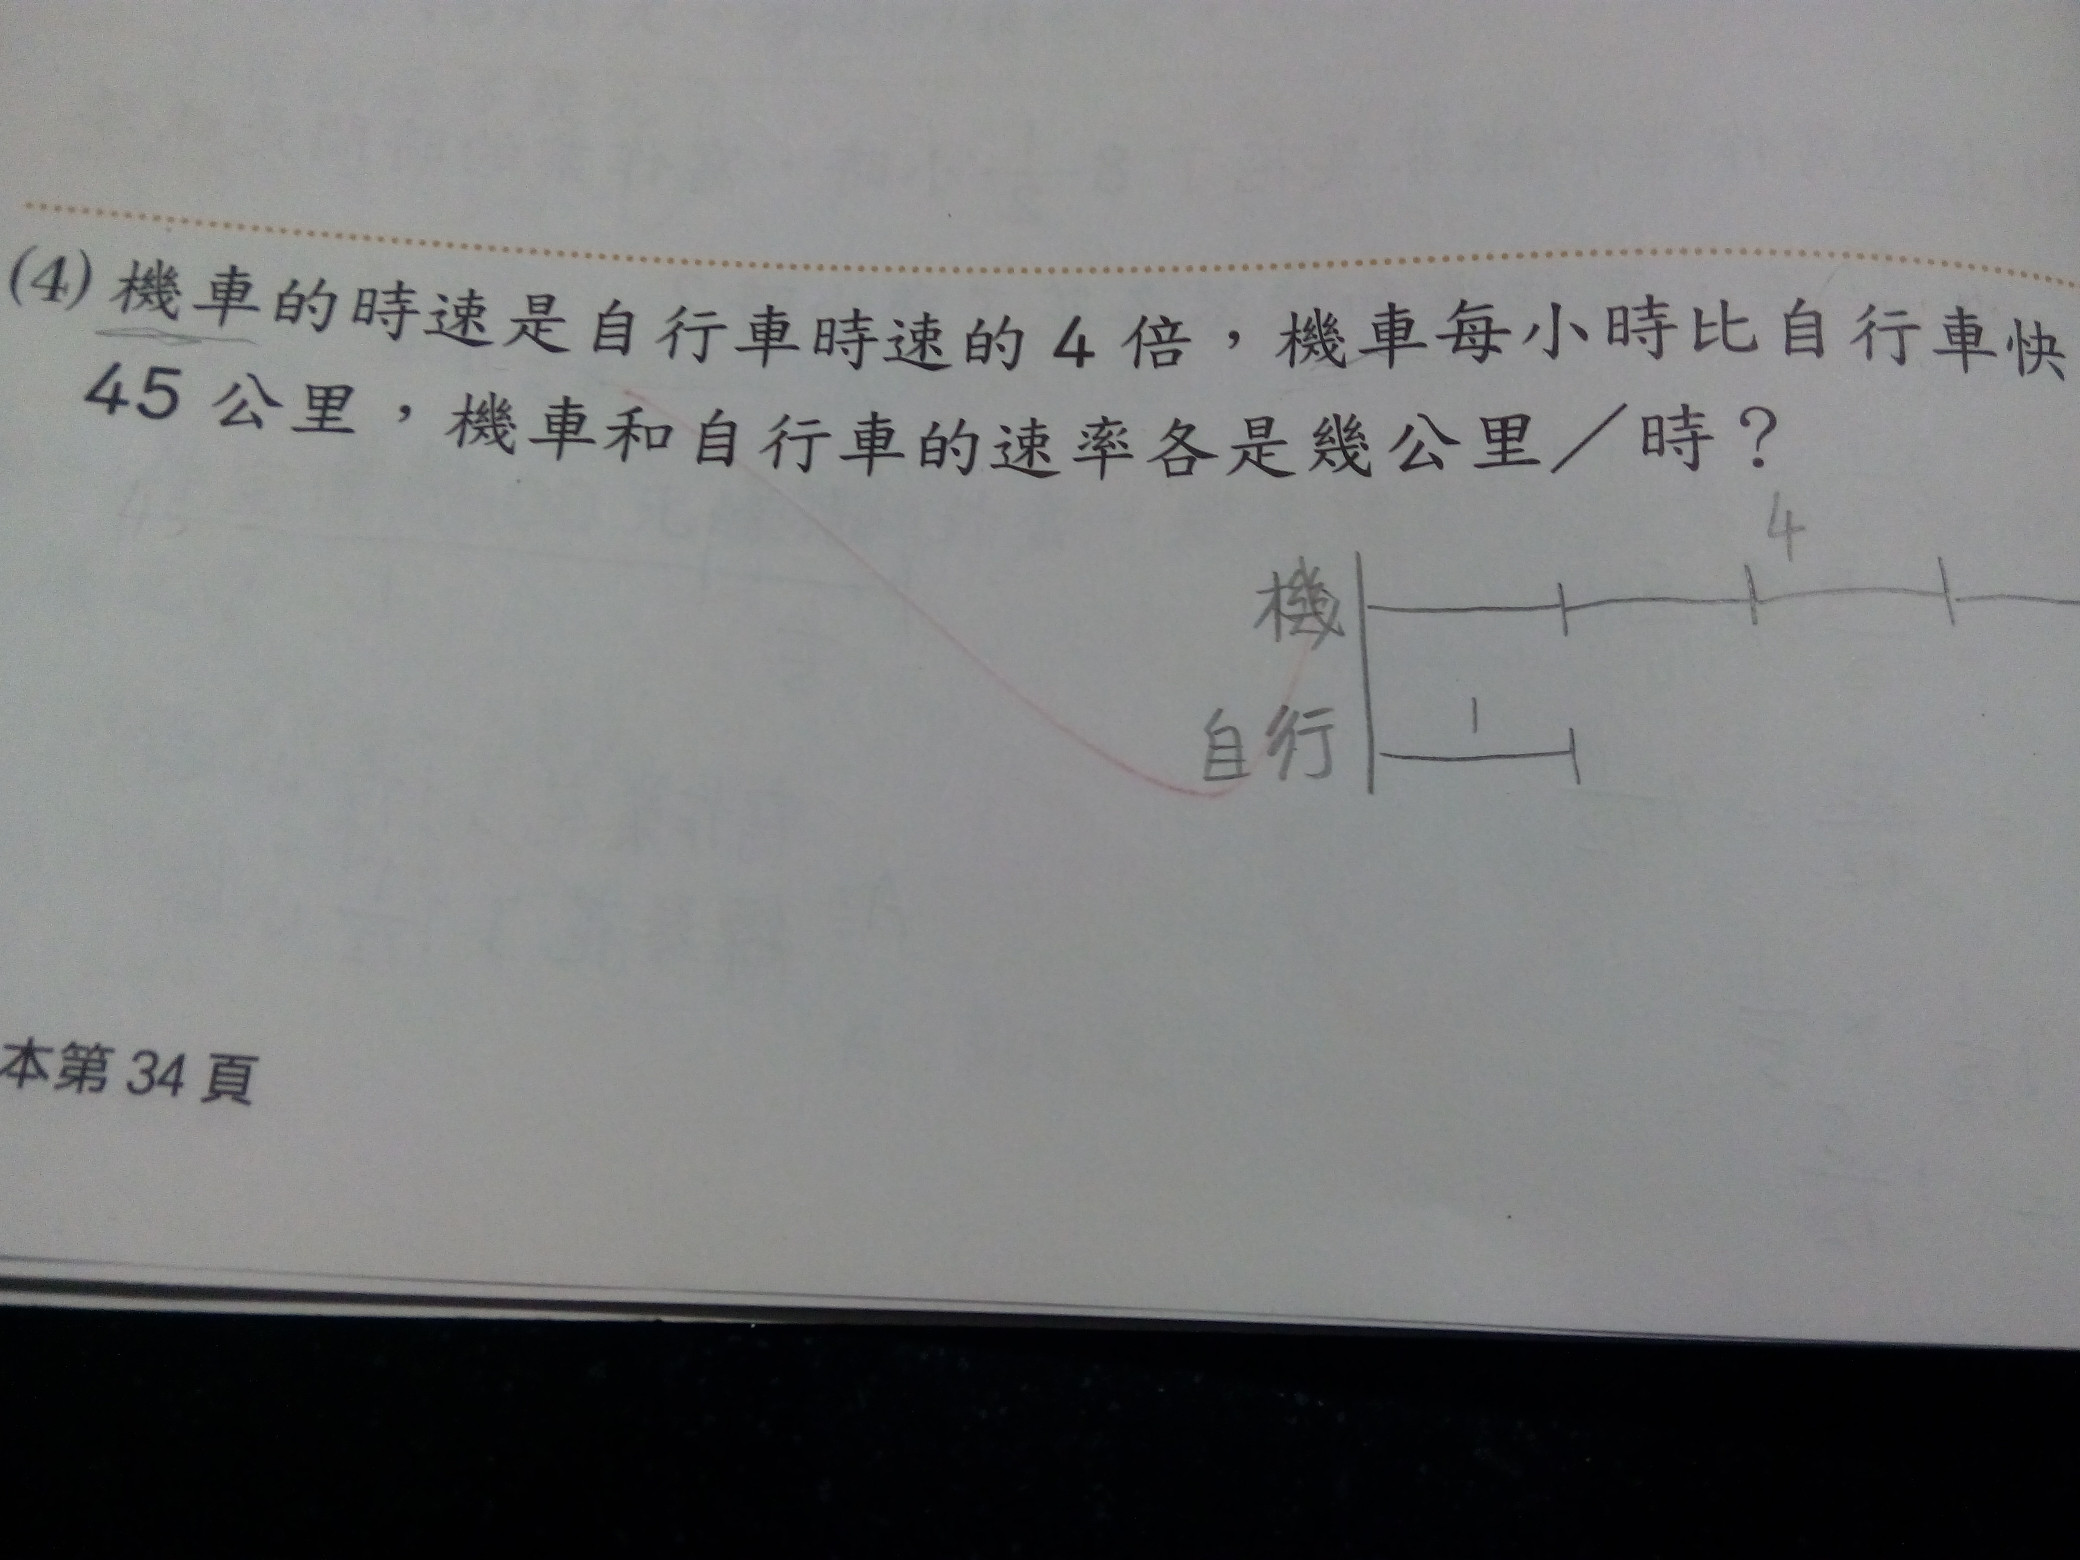 (4) 機車的時速是自行車時速的 4 倍，機車每小時比自行車快
45 公里，機車和自行車的速率各是幾公里／時？
4
機
1
自行
本第 34 頁